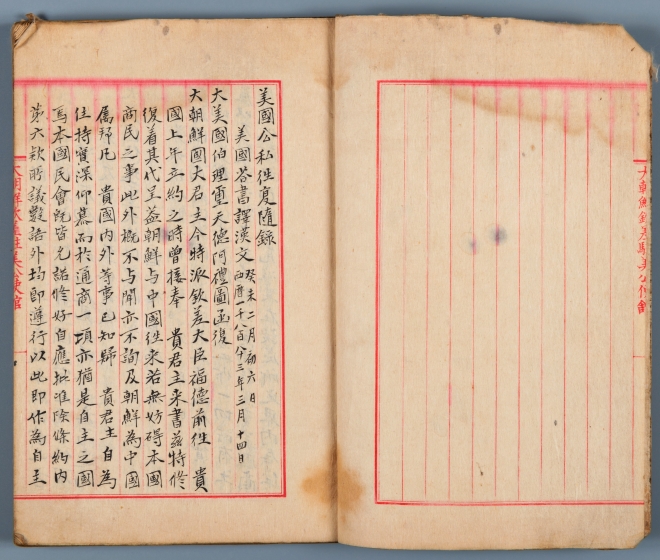 大朝鮮欽差駐美公使館
美國公私徃復隨錄
美國答書譯漢文 癸未二月初六日
西曆一千八百八十三年三月十四日
大美國伯理璽天德阿禮圖函復
大朝鮮國大君主今特派欽差大臣福德前徃 貴
國上年立約之時曾接奉 貴君主來書茲特修
復着其代呈益朝鮮與中國徃來若無妨碍本國
商民之事此外概不與聞亦不詢及朝鮮為中國
屬邦凡 貴國內外等事已知歸 貴君主自為
住持實深仰慕而於通商一項亦猶是自主之國
焉本國民會旣皆允諾修好自應批准除條約內
第六款所議數語外均即遵行以此即作為自主
大朝鮮欽差駐美公使館